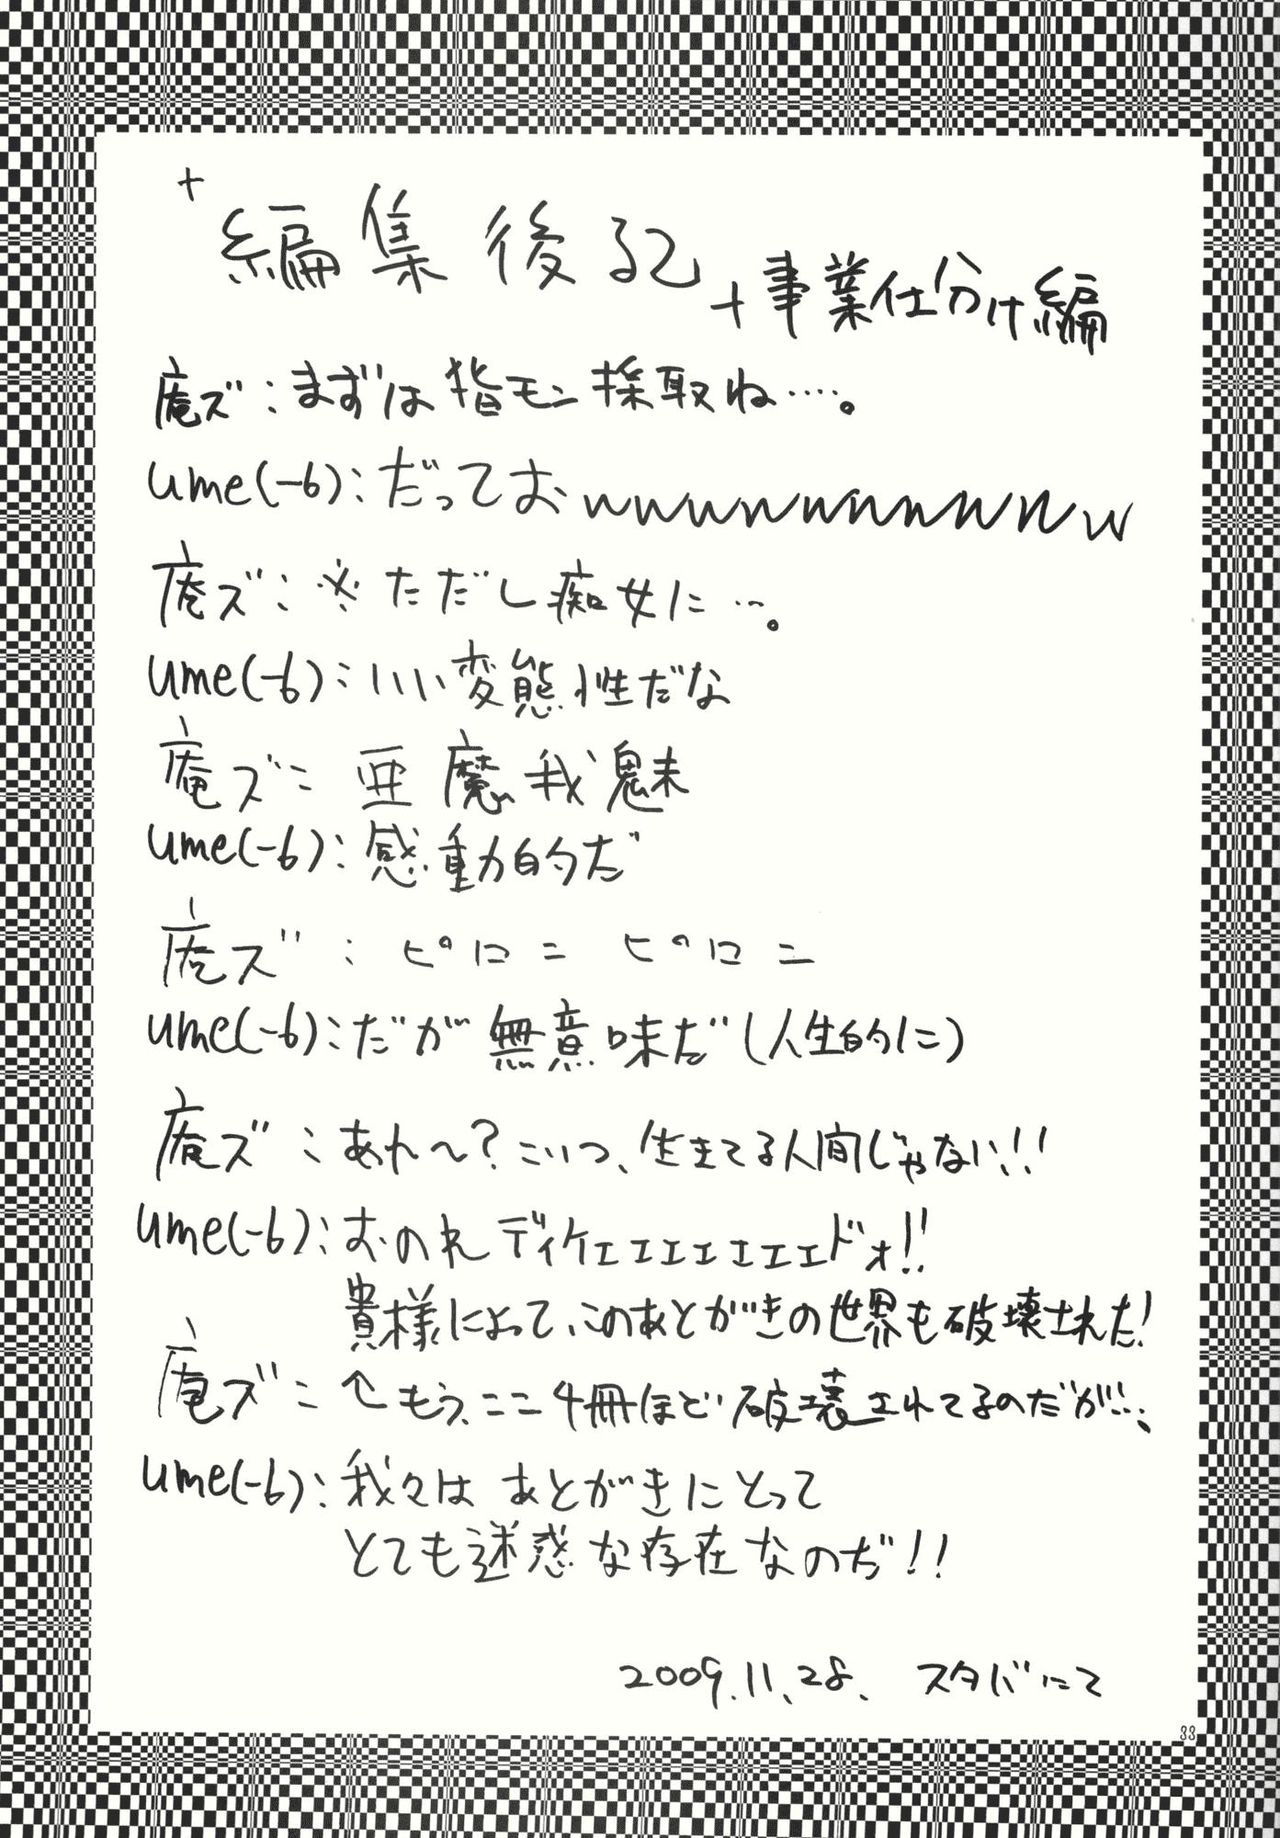 +編集後記
+事業仕分け編
庵ズ:まずは指モン採取ね…。
ume(-6):だっておwwwwwwwwwww
庵ズ:※ただし痴女に…。
ume(-6):いい変態性だな
庵ズ:亜魔我魅
ume(-6):感動的だ
庵ズ:ピロニ ピロニ
ume(-6):だが無意味だ(人生的に)
庵ズ:あれ〜?こいつ、生きてる人間じゃない!!
ume(-6):おのれディケェェェェェェドォ!!
貴様によって、このあとがきの世界も破壊された!
庵ズ:↑もう、ここ4冊ほど破壊されてるのだが…。
ume(-6):我々はあとがきにとって
とても迷惑な存在なのぢ!!
2009.11.28. スタバにて
33